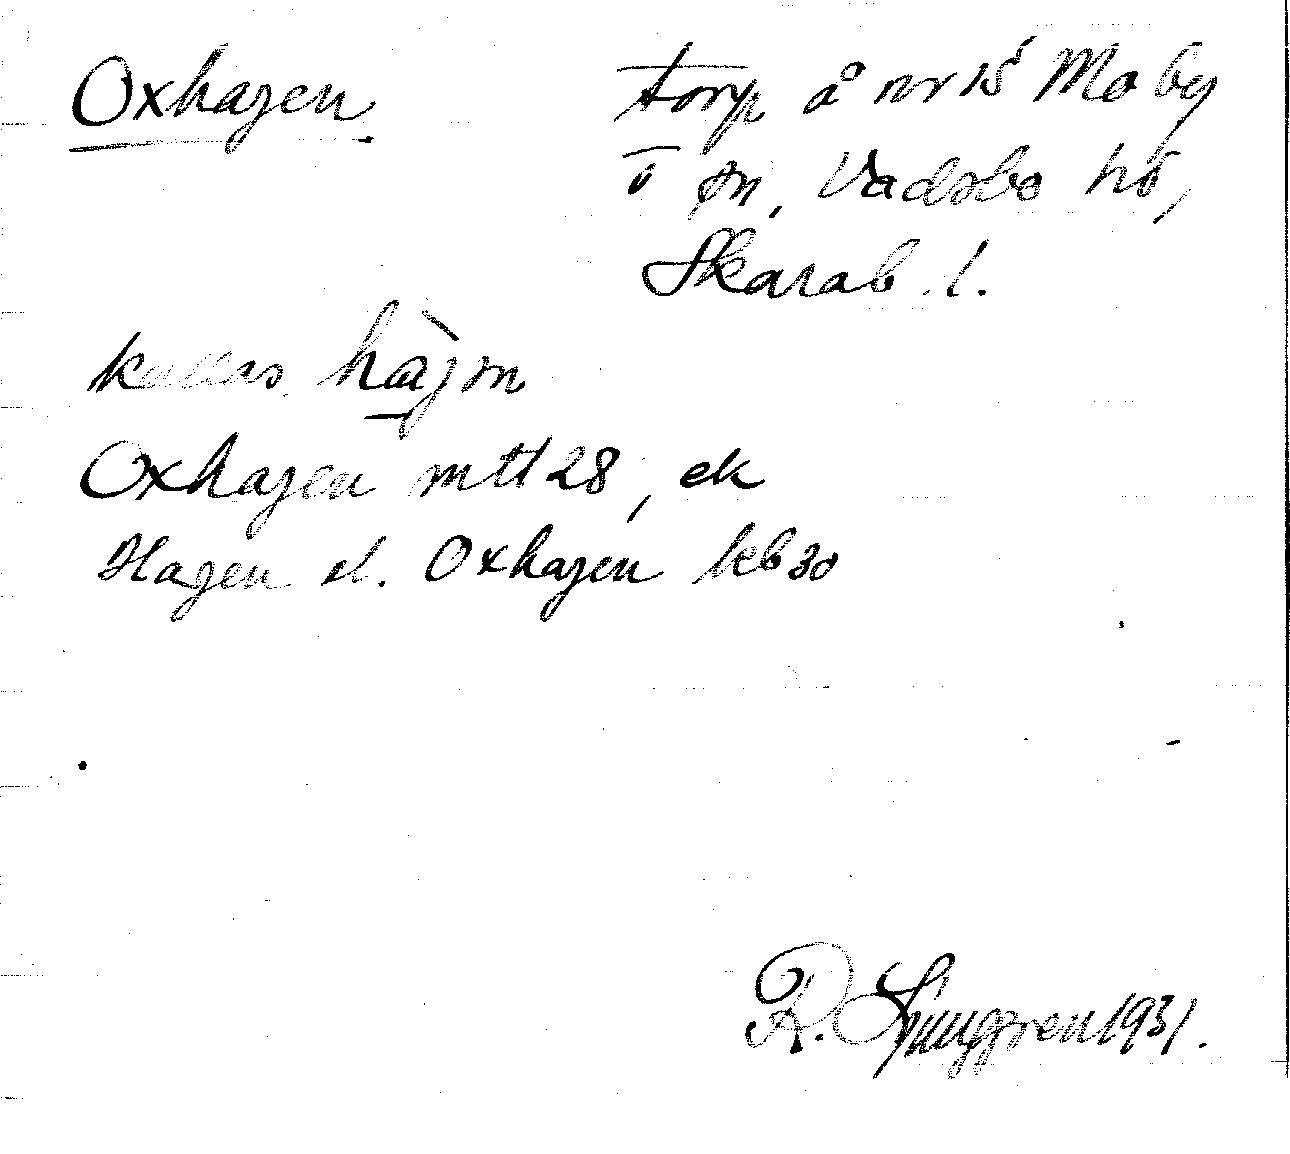 Oxhagen
torp å nr 15 Moby
i sn, Vadsbo hd,
Skarab. l.
kallas hàjɷn
Oxhagen mtl 28, ek
Hagen el. Oxhagen kb 30
R. Ljunggren 1931.